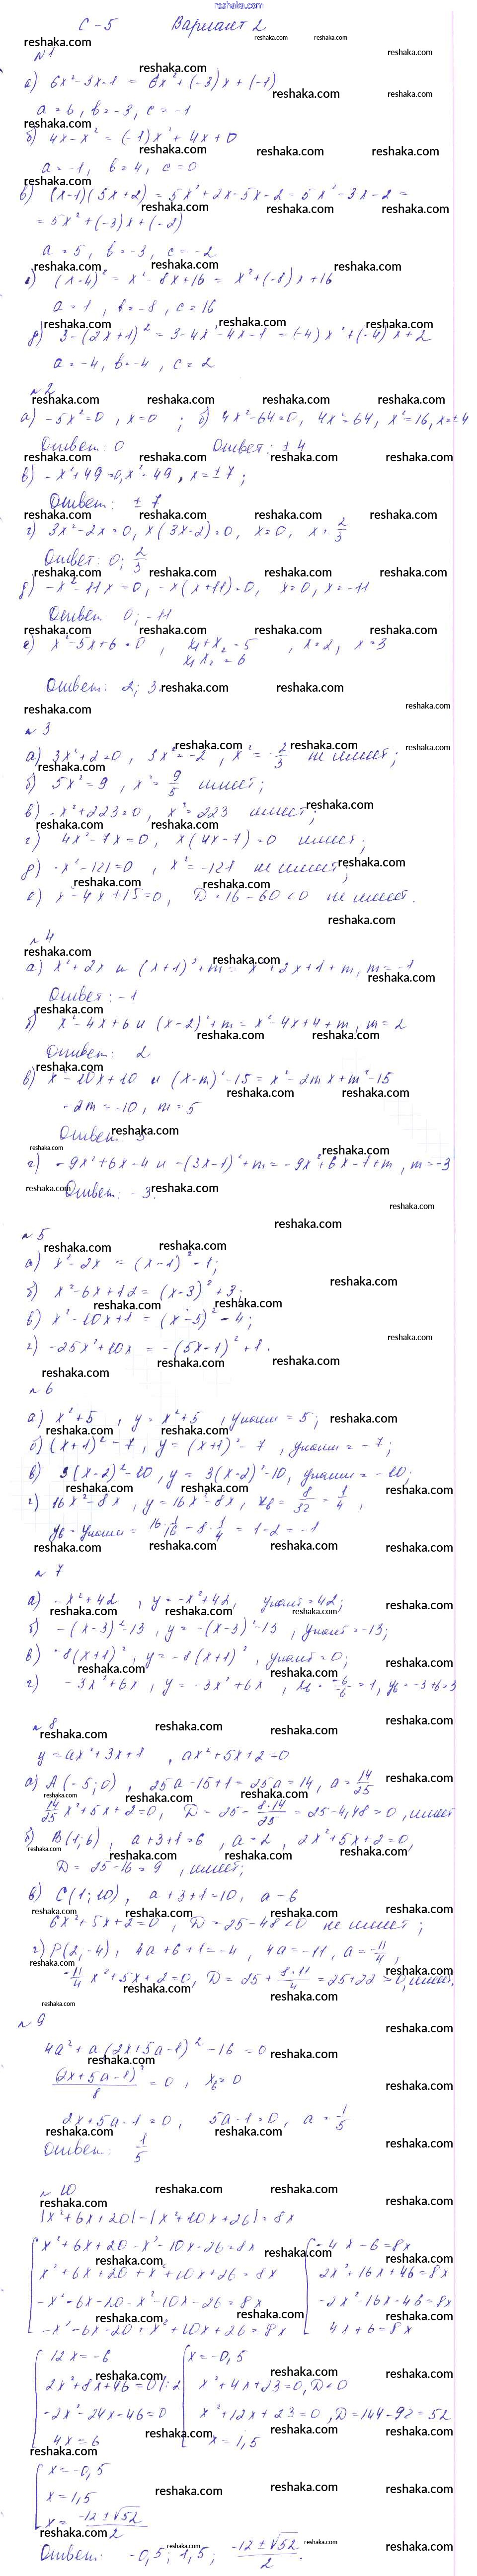 reshaka.com
С-5 Вариант 2
№1
а) 6x²-3x-1 = 6x²+(-3)x+(-1)
a=6, b=-3, c=-1
б) 4x-x² = (-1)x²+4x+0
a=-1, b=4, c=0
в) (x-1)(5x+2) = 5x²+2x-5x-2 = 5x²-3x-2 =
= 5x²+(-3)x+(-2)
a=5, b=-3, c=-2
г) (x-4)² = x²-8x+16 = x²+(-8)x+16
a=1, b=-8, c=16
д) 3-(2x+1)² = 3-4x²-4x-1 = (-4)x²+(-4)x+2
a=-4, b=-4, c=2
№2
а) -5x²=0, x=0; б) 4x²-64=0, 4x²=64, x²=16, x=±4
Ответ: 0 Ответ: ±4
в) -x²+49=0, x²=49, x=±7;
Ответ: ±7
г) 3x²-2x=0, x(3x-2)=0, x=0, x=2/3
Ответ: 0; 2/3
д) -x²-11x=0, -x(x+11)=0, x=0, x=-11
Ответ 0; -11
е) x²-5x+6=0, x₁+x₂=5, x=2, x=3
x₁x₂=6
Ответ: 2; 3.
№3
а) 3x²+2=0, 3x²=-2, x²=-2/3 не имеет;
б) 5x²=9, x²=9/5 имеет;
в) -x²+223=0, x²=223 имеет;
г) 4x²-7x=0, x(4x-7)=0 имеет;
д) -x²-121=0, x²=-121 не имеет;
е) x²-4x+15=0, D=16-60<0 не имеет.
№4
а) x²+2x и (x+1)²+m = x²+2x+1+m, m=-1
Ответ: -1
б) x²-4x+6 и (x-2)²+m = x²-4x+4+m, m=2
Ответ: 2
в) x²-10x+10 и (x-m)²-15 = x²-2mx+m²-15
-2m=-10, m=5
Ответ: 5
г) -9x²+6x-4 и -(3x-1)²+m = -9x²+6x-1+m, m=-3
Ответ: -3.
№5
а) x²-2x = (x-1)²-1;
б) x²-6x+12 = (x-3)²+3;
в) x²-10x+1 = (x-5)²-4;
г) -25x²+10x = -(5x-1)²+1.
№6
а) x²+5, y=x²+5, yнаим=5;
б) (x+1)²-7, y=(x+1)²-7, yнаим=-7;
в) 3(x-2)²-10, y=3(x-2)²-10, yнаим=-10;
г) 16x²-8x, y=16x²-8x, xв=8/32=1/4,
yв=yнаим=16·1/16-8·1/4=1-2=-1
№7
а) -x²+42, y=-x²+42, yнаиб=42;
б) -(x-3)²-13, y=-(x-3)²-13, yнаиб=-13;
в) -8(x+1)², y=-8(x+1)², yнаиб=0;
г) -3x²+6x, y=-3x²+6x, xв=-6/-6=1, yв=-3+6=3
№8
y=ax²+3x+1, ax²+5x+2=0
а) A(-5;0), 25a-15+1=25a=14, a=14/25
14/25x²+5x+2=0, D=25-8·14/25=25-4,48>0, имеет
б) B(1;6), a+3+1=6, a=2, 2x²+5x+2=0,
D=25-16=9, имеет;
в) C(1;10), a+3+1=10, a=6
6x²+5x+2=0, D=25-48<0 не имеет;
г) P(2,-4), 4a+6+1=-4, 4a=-11, a=-11/4,
-11/4x²+5x+2=0, D=25+8·11/4=25+22>0, имеет.
№9
4a²+a(2x+5a-1)²-16=0
(2x+5a-1)²/8=0, xв=0
2x+5a-1=0, 5a-1=0, a=1/5
Ответ: 1/5
№10
|x²+6x+20|-|x²+10x+26|=8x
x²+6x+20-x²-10x-26=8x -4x-6=8x
x²+6x+20+x²+10x+26=8x 2x²+16x+46=8x
-x²-6x-20-x²-10x-26=8x -2x²-16x-46=8x
-x²-6x-20+x²+10x+26=8x 4x+6=8x
12x=-6 x=-0,5
2x²+8x+46=0|:2 x²+4x+23=0, D<0
-2x²-24x-46=0 x²+12x+23=0, D=144-92=52
4x=6 x=1,5
x=-0,5
x=1,5
x=-12±√52/2
Ответ: -0,5; 1,5; -12±√52/2.